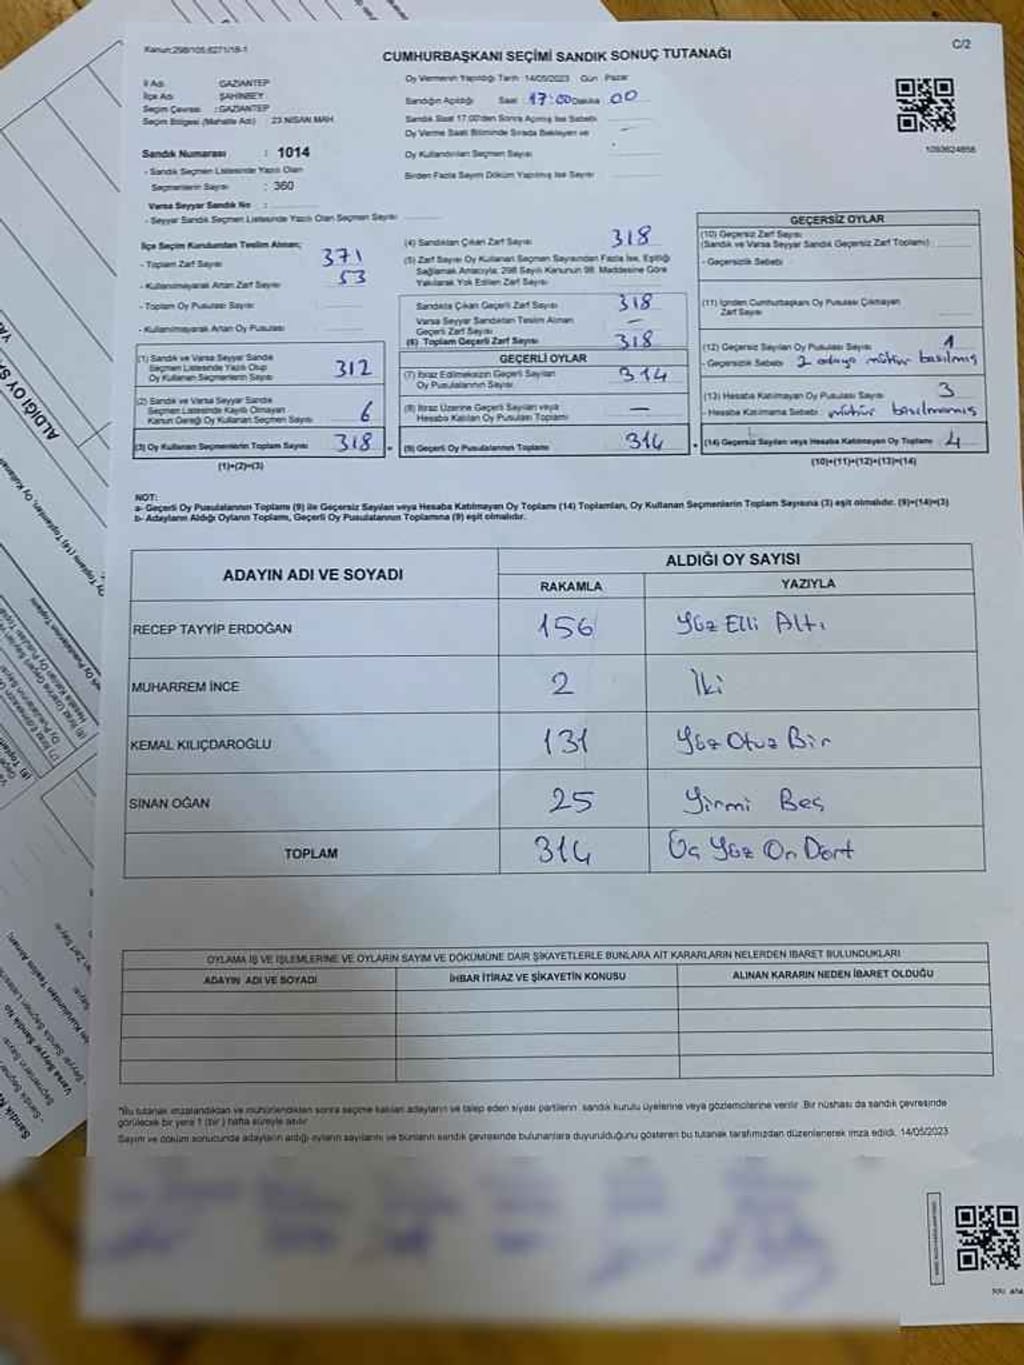 Kanun:298/105;6271/18-1
C/2
CUMHURBAŞKANI SEÇİMİ SANDIK SONUÇ TUTANAĞI
İl Adı GAZİANTEP
İlçe Adı ŞAHİNBEY
Seçim Çevresi : GAZİANTEP
Seçim Bölgesi (Mahalle Adı) 23 NİSAN MAH.
Sandık Numarası : 1014
- Sandık Seçmen Listesinde Yazılı Olan
Seçmenlerin Sayısı : 360
Varsa Seyyar Sandık No :
- Seyyar Sandık Seçmen Listesinde Yazılı Olan Seçmen Sayısı
Oy Vermenin Yapıldığı Tarih : 14/05/2023 Gün : Pazar
Sandığın Açıldığı Saat : 17:00 Dakika 00
Sandık Saat 17.00'den Sonra Açılmış İse Sebebi
Oy Verme Saati Bitiminde Sırada Bekleyen ve
Oy Kullandırılan Seçmen Sayısı
Birden Fazla Sayım Döküm Yapılmış İse Sayısı
1093624856
İlçe Seçim Kurulundan Teslim Alınan;
- Toplam Zarf Sayısı 371
- Kullanılmayarak Artan Zarf Sayısı 53
- Toplam Oy Pusulası Sayısı
- Kullanılmayarak Artan Oy Pusulası
(1) Sandık ve Varsa Seyyar Sandık
Seçmen Listesinde Yazılı Olup
Oy Kullanan Seçmenlerin Sayısı 312
(2) Sandık ve Varsa Seyyar Sandık
Seçmen Listesinde Kayıtlı Olmayan
Kanun Gereği Oy Kullanan Seçmen Sayısı 6
(3) Oy Kullanan Seçmenlerin Toplam Sayısı 318
(1)+(2)=(3)
(4) Sandıktan Çıkan Zarf Sayısı 318
(5) Zarf Sayısı Oy Kullanan Seçmen Sayısından Fazla İse, Eşitliği
Sağlamak Amacıyla; 298 Sayılı Kanunun 98. Maddesine Göre
Yakılarak Yok Edilen Zarf Sayısı
Sandıkta Çıkan Geçerli Zarf Sayısı 318
Varsa Seyyar Sandıktan Teslim Alınan
Geçerli Zarf Sayısı —
(6) Toplam Geçerli Zarf Sayısı 318
GEÇERLİ OYLAR
(7) İtiraz Edilmeksizin Geçerli Sayılan
Oy Pusulalarının Sayısı 314
(8) İtiraz Üzerine Geçerli Sayılan veya
Hesaba Katılan Oy Pusulası Toplamı —
(9) Geçerli Oy Pusulalarının Toplamı 314
GEÇERSİZ OYLAR
(10) Geçersiz Zarf Sayısı
(Sandık ve Varsa Seyyar Sandık Geçersiz Zarf Toplamı)
- Geçersizlik Sebebi
(11) İçinden Cumhurbaşkanı Oy Pusulası Çıkmayan
Zarf Sayısı
(12) Geçersiz Sayılan Oy Pusulası Sayısı 1
- Geçersizlik Sebebi 2 adaya mühür basılmış
(13) Hesaba Katılmayan Oy Pusulası Sayısı 3
- Hesaba Katılmama Sebebi mühür basılmamış
(14) Geçersiz Sayılan veya Hesaba Katılmayan Oy Toplamı 4
(10)+(11)+(12)+(13)=(14)
NOT:
a- Geçerli Oy Pusulalarının Toplamı (9) ile Geçersiz Sayılan veya Hesaba Katılmayan Oy Toplamı (14) Toplamları, Oy Kullanan Seçmenlerin Toplam Sayısına (3) eşit olmalıdır. (9)+(14)=(3)
b- Adayların Aldığı Oyların Toplamı, Geçerli Oy Pusulalarının Toplamına (9) eşit olmalıdır.
ADAYIN ADI VE SOYADI
ALDIĞI OY SAYISI
RAKAMLA YAZIYLA
RECEP TAYYİP ERDOĞAN 156 Yüz Elli Altı
MUHARREM İNCE 2 İki
KEMAL KILIÇDAROĞLU 131 Yüz Otuz Bir
SİNAN OĞAN 25 Yirmi Beş
TOPLAM 314 Üç Yüz On Dört
OYLAMA İŞ VE İŞLEMLERİNE VE OYLARIN SAYIM VE DÖKÜMÜNE DAİR ŞİKAYETLERLE BUNLARA AİT KARARLARIN NELERDEN İBARET BULUNDUKLARI
ADAYIN ADI VE SOYADI İHBAR İTİRAZ VE ŞİKAYETİN KONUSU ALINAN KARARIN NEDEN İBARET OLDUĞU
*Bu tutanak imzalandıktan ve mühürlendikten sonra seçime katılan adayların ve talep eden siyasi partilerin sandık kurulu üyelerine veya gözlemcilerine verilir. Bir nüshası da sandık çevresinde
görülecek bir yere 1 (bir) hafta süreyle asılır.
Sayım ve döküm sonucunda adayların aldığı oyların sayılarını ve bunların sandık çevresinde bulunanlara duyurulduğunu gösteren bu tutanak tarafımızdan düzenlenerek imza edildi. 14/05/2023